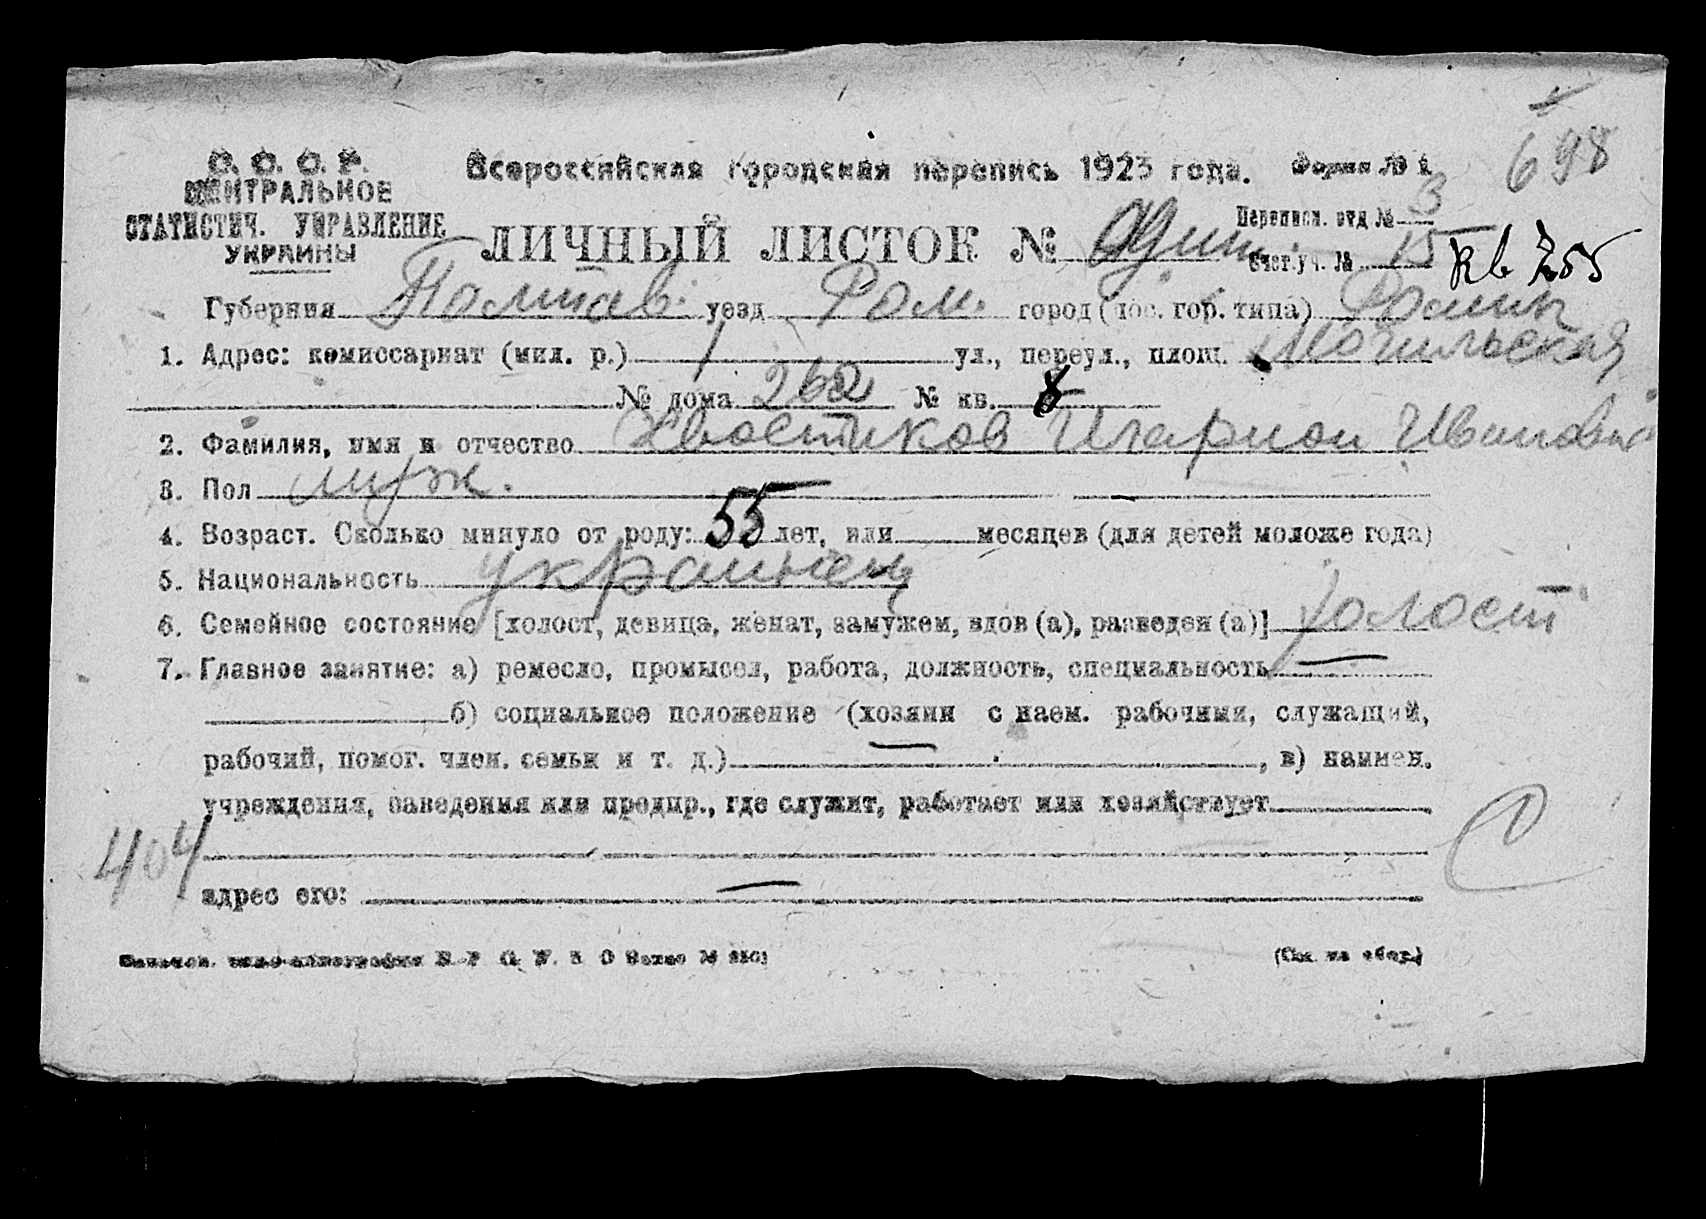 С. С. С. Р.
ЦЕНТРАЛЬНОЕ
СТАТИСТИЧ. УПРАВЛЕНИЕ
УКРАИНЫ
Всероссийская городская перепись 1923 года. Форма № 1
698
Переписн. отд № 3
ЛИЧНЫЙ ЛИСТОК № Один
Счет. уч. № 15
кв 255
Губерния Полтав. уезд Ром. город (пос. гор. типа) Ромны
1. Адрес: комиссариат (мил. р.) 1 ул., переул., площ. Могильская
№ дома 262 № кв. 8
2. Фамилия, имя и отчество Хвостиков Иларион Иванович
3. Пол муж.
4. Возраст. Сколько минуло от роду: 55 лет, или месяцев (для детей моложе года)
5. Национальность украинец
6. Семейное состояние [холост, девица, женат, замужем, вдов (а), разведен (а)] холост
7. Главное занятие: а) ремесло, промысел, работа, должность, специальность —
б) социальное положение (хозяин с наем. рабочими, служащий,
рабочий, помог. член. семьи и т. д.) — , в) наимен.
учреждения, заведения или предпр., где служит, работает или хозяйствует
404
адрес его: —
(См. на обор.)